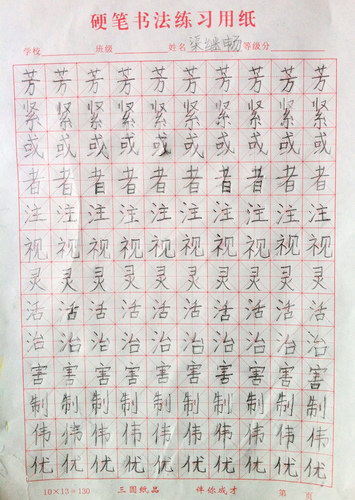 硬笔书法练习用纸
学校 班级 姓名 梁继畅 等级分
芳芳芳芳芳芳芳芳芳芳
紧紧紧紧紧紧紧紧紧紧
或或或或或或或或或或
者者者者者者者者者者
注注注注注注注注注注
视视视视视视视视视视
灵灵灵灵灵灵灵灵灵灵
活活活活活活活活活活
治治治治治治治治治治
害害害害害害害害害害
制制制制制制制制制制
伟伟伟伟伟伟伟伟伟伟
优优优优优优优优优优
10×13=130 三圆纸品 伴你成才 第 页